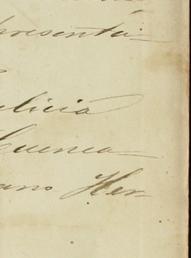 presenta-
elicia
Cuenca
ano Her-